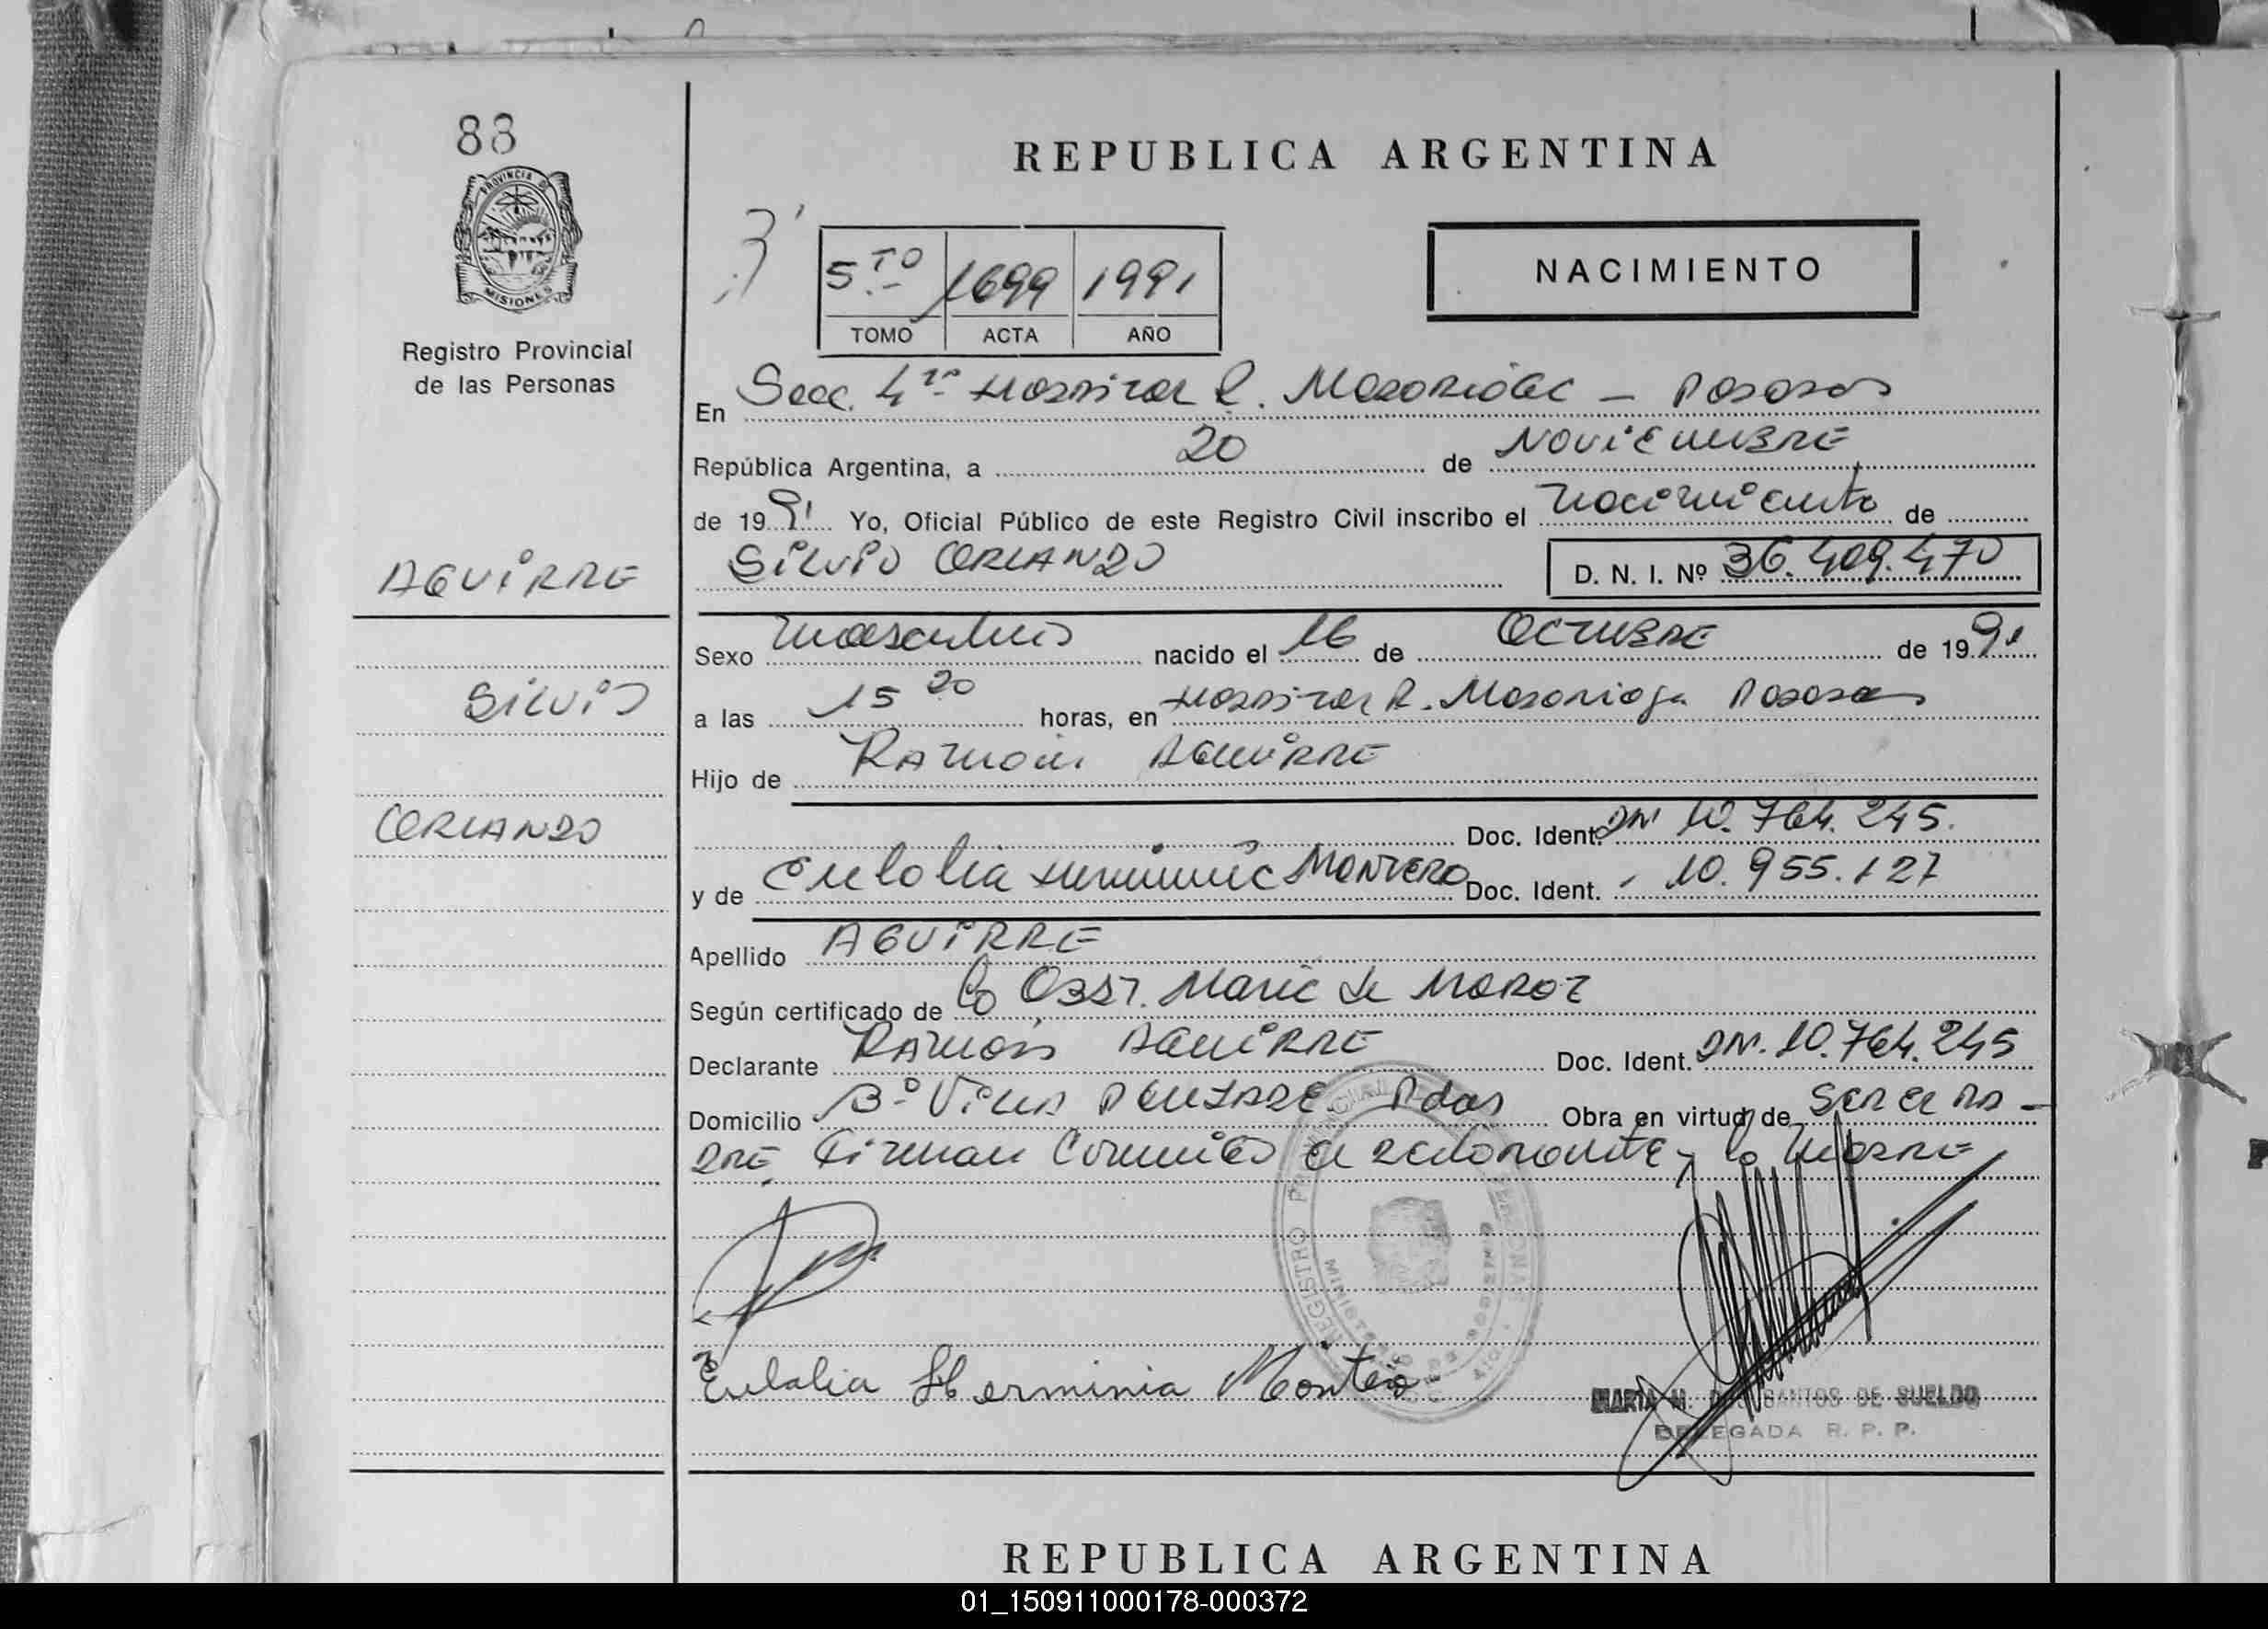 88
PROVINCIA DE
MISIONES
Registro Provincial
de las Personas
AGUIRRE
SILVIO
ORLANDO
REPUBLICA ARGENTINA
3
5TO 1699 1991
TOMO ACTA AÑO
NACIMIENTO
En Secc. 4ta Hospital R. Madariaga - Posadas
República Argentina, a 20 de NOVIEMBRE
de 1991 Yo, Oficial Público de este Registro Civil inscribo el nacimiento de
SILVIO ORLANDO D. N. I. Nº 36.409.470
Sexo masculino nacido el 16 de OCTUBRE de 1991
a las 15 20 horas, en Hospital R. Madariaga Posadas
Hijo de RAMON AGUIRRE
Doc. Ident. DNI 10.764.245.
y de Eulalia Herminia MONTERO Doc. Ident. 10.955.127
Apellido AGUIRRE
Según certificado de la OBST. Maria de
Declarante RAMON AGUIRRE Doc. Ident. DNI. 10.764.245
Domicilio Bº VILLA Pdas Obra en virtud de SER EL PA-
DRE Firman el declarante y la MADRE
REGISTRO PROVINCIAL DE LAS PERSONAS
MINISTERIO DE GOBIERNO
Eulalia Herminia Montero
MARIA M. DOS SANTOS DE SUELDO
DELEGADA R. P. P.
REPUBLICA ARGENTINA
01_150911000178-000372